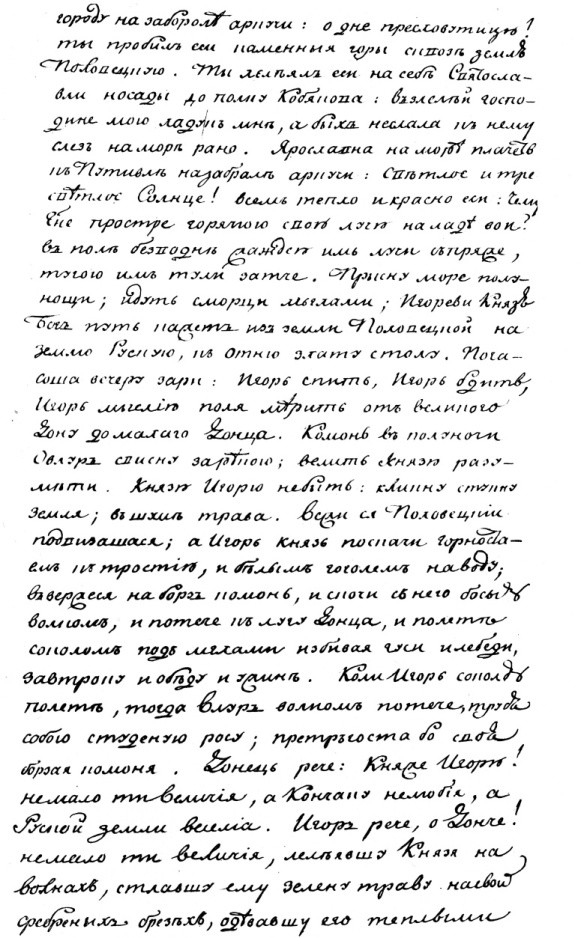 городу на заборолѣ аркучи: о дне пресловутицю!
ты пробилъ еси каменныя горы сквозѣ землѣ
Половецкую. Ты лелѣялъ еси на себѣ Святосла-
вли носады до полку Кобякова: възлелѣй госпо-
дине мою ладу къ мнѣ, а быхъ неслала къ нему
слезъ на морѣ рано. Ярославна на морѣ плачетъ
къ Путивлѣ на забралѣ аркучи: Свѣтлое и тре
свѣтлое Солнце! всемъ тепло и красно еси: Чему
Гне простре горячюю свою лучю на ладѣ вои?
въ полѣ безводнѣ жаждею имь лучи съпряже,
тугою имъ тули затче. Прысну море полу-
нощи; идутъ сморци мьглами; Игореви Князю
Богъ путь кажетъ изъ земли Половецкой на
землю Рускую, къ отню злату столу. Пога-
соша вечеру зари: Игорь спитъ, Игорь бдитъ,
Игорь мыслію поля мѣритъ отъ великого
Дону до малаго Донца. Комонь въ полуночи
Овлуръ свисну за рѣкою; велитъ Князю разу-
мѣти. Князю Игорю небыть: кликну стукну
земля; въшумѣ трава. Вежи ся Половецкіи
подвизашася; а Игорь князь поскачи горноста-
емъ къ тростію, и бѣлымъ гоголемъ на воду;
въвержеся на борзъ комонь, и скочи съ него босымъ
волкомъ, и потече къ лугу Донца, и полетѣ
соколомъ подъ мьглами избивая гуси и лебеди,
завтроку и обѣду и ужинѣ. Коли Игорь соколомъ
полетѣ, тогда Влуръ волкомъ потече, труся
собою студеную росу; претръгоста бо своя
борзая комоня. Донецъ рече: Княже Игорю!
не мало ти величія, а Кончаку нелюбія, а
Руской земли веселіа. Игорь рече, о Донче!
не мало ти величія, лелѣявшу Князя на
волнахъ, стлавшу ему зелену траву на своихъ
сребреныхъ брезѣхъ, одѣвавшу его теплыми